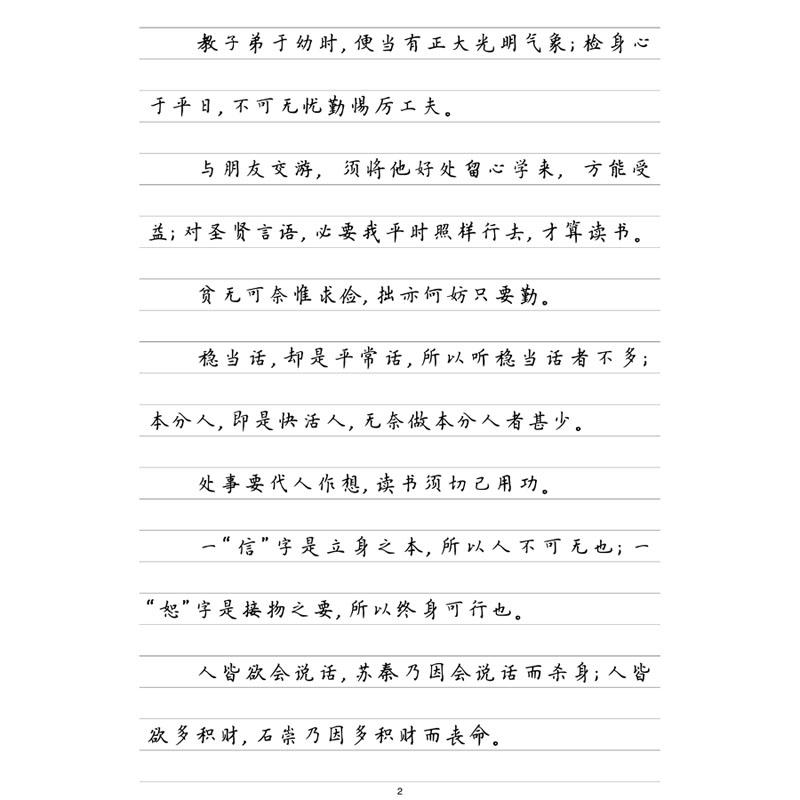 教子弟于幼时,便当有正大光明气象;检身心
于平日,不可无忧勤惕厉工夫。
与朋友交游, 须将他好处留心学来, 方能受
益;对圣贤言语,必要我平时照样行去,才算读书。
贫无可奈惟求俭,拙亦何妨只要勤。
稳当话,却是平常话,所以听稳当话者不多;
本分人,即是快活人,无奈做本分人者甚少。
处事要代人作想,读书须切己用功。
一“信”字是立身之本,所以人不可无也;一
“恕”字是接物之要,所以终身可行也。
人皆欲会说话,苏秦乃因会说话而杀身;人皆
欲多积财,石崇乃因多积财而丧命。
2